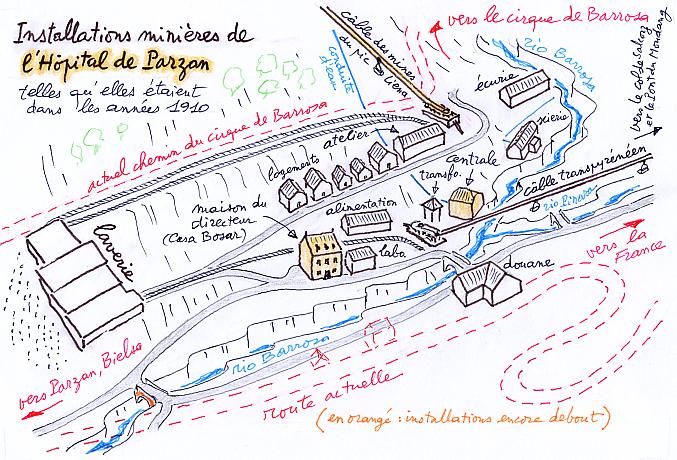 Installations minières de
l'Hôpital de Parzan
telles qu'elles étaient
dans les années 1910
câble des mines
du Mt Liena
conduite
d'eau
vers le cirque de Barrosa
rio Barrosa
vers le col de Salcoz
et le Pont du Moudang
écurie
scierie
actuel chemin du cirque de Barrosa
atelier
logements
centrale
transfo.
câble transpyrénéen
maison du
directeur
(Casa Bosar)
alimentation
rio Pinara
laverie
labo
douane
vers la
France
rio Barrosa
vers Parzan, Bielsa
route actuelle
(en orangé : installations encore debout)